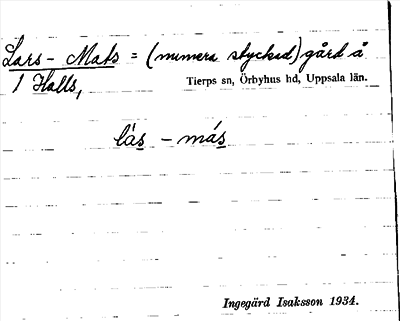 Lars-Mats = (numera styckad) gård å
1 Halls, Tierps sn, Örbyhus hd, Uppsala län.
lás - más
Ingegärd Isaksson 1934.